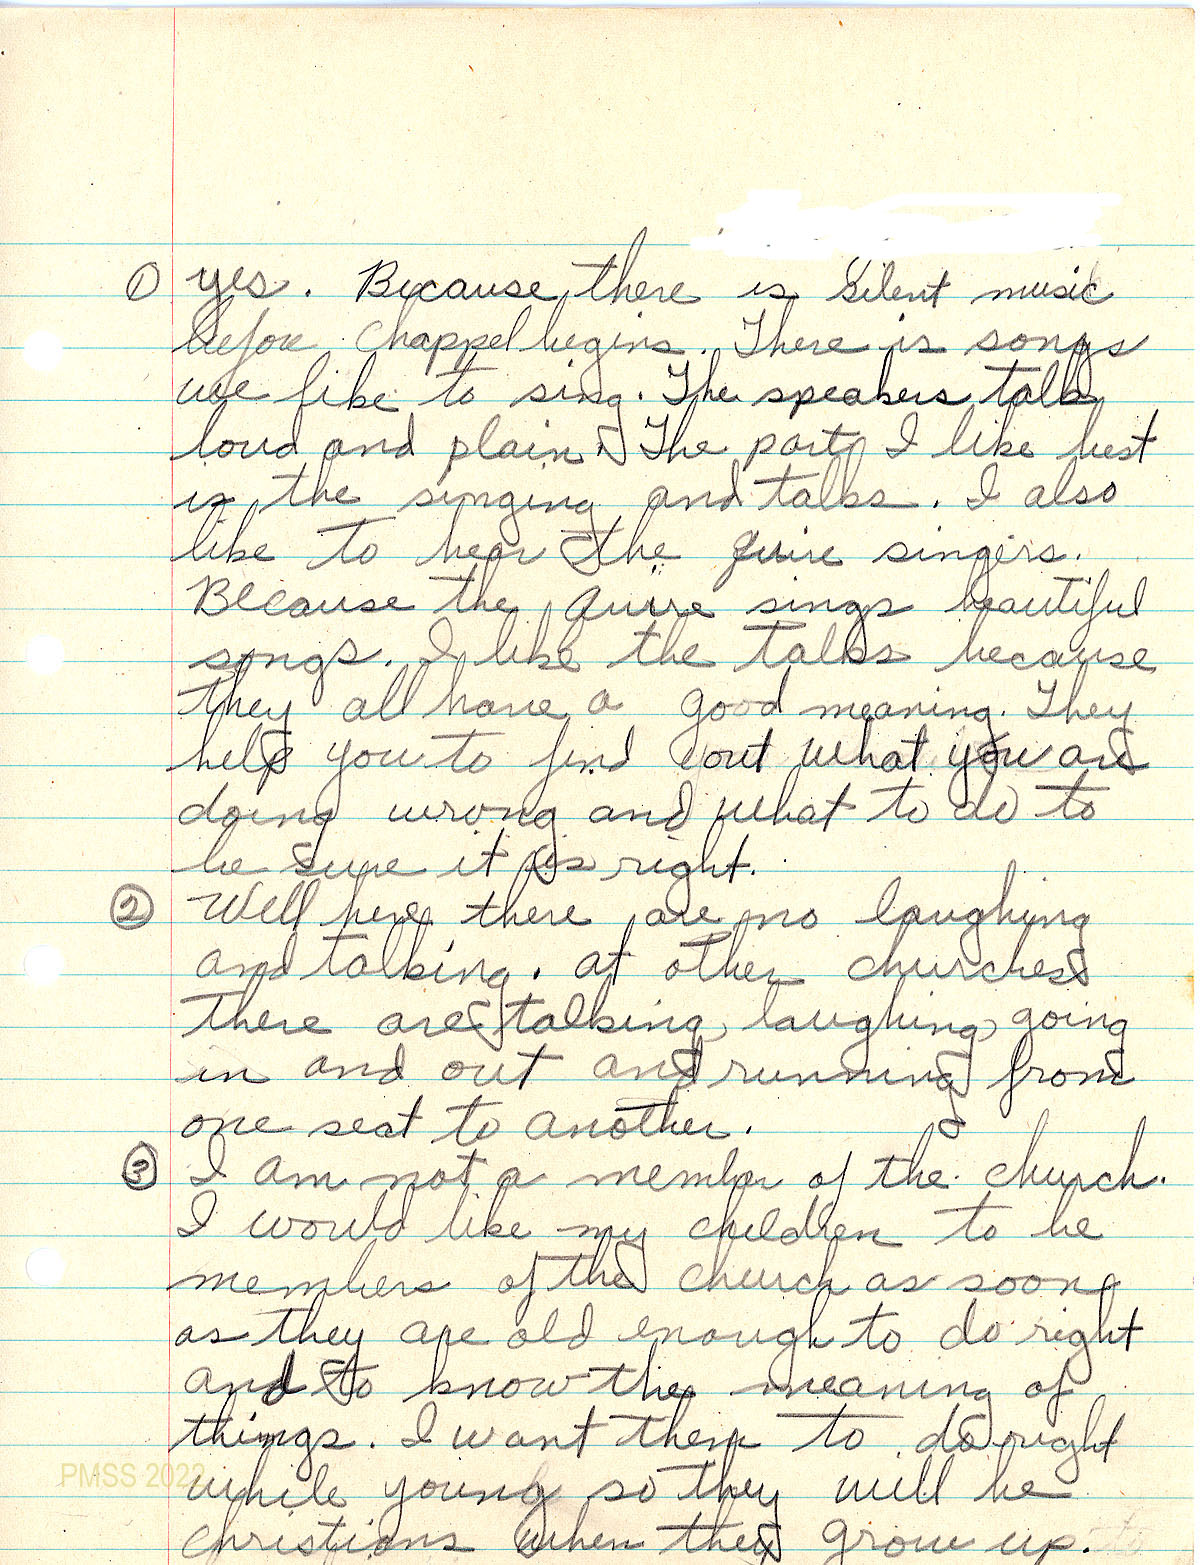 ① yes. Because there is Silent music
before Chappel begins. There is songs
we like to sing. The speakers talk
loud and plain. The parts I like best
is the singing and talks. I also
like to hear the quire singers.
Because the quire sings beautiful
songs. I like the talks because
they all have a good meaning. They
help you to find out what you are
doing wrong and what to do to
be sure it is right.
② Well here there are no laughing
and talking. at other churches
there are talking, laughing, going
in and out and running from
one seat to another.
③ I am not a member of the church.
I would like my children to be
members of the church as soon
as they are old enough to do right
and to know the meaning of
things. I want them to do right
PMSS 2022
while young so they will be
christians when they grow up.